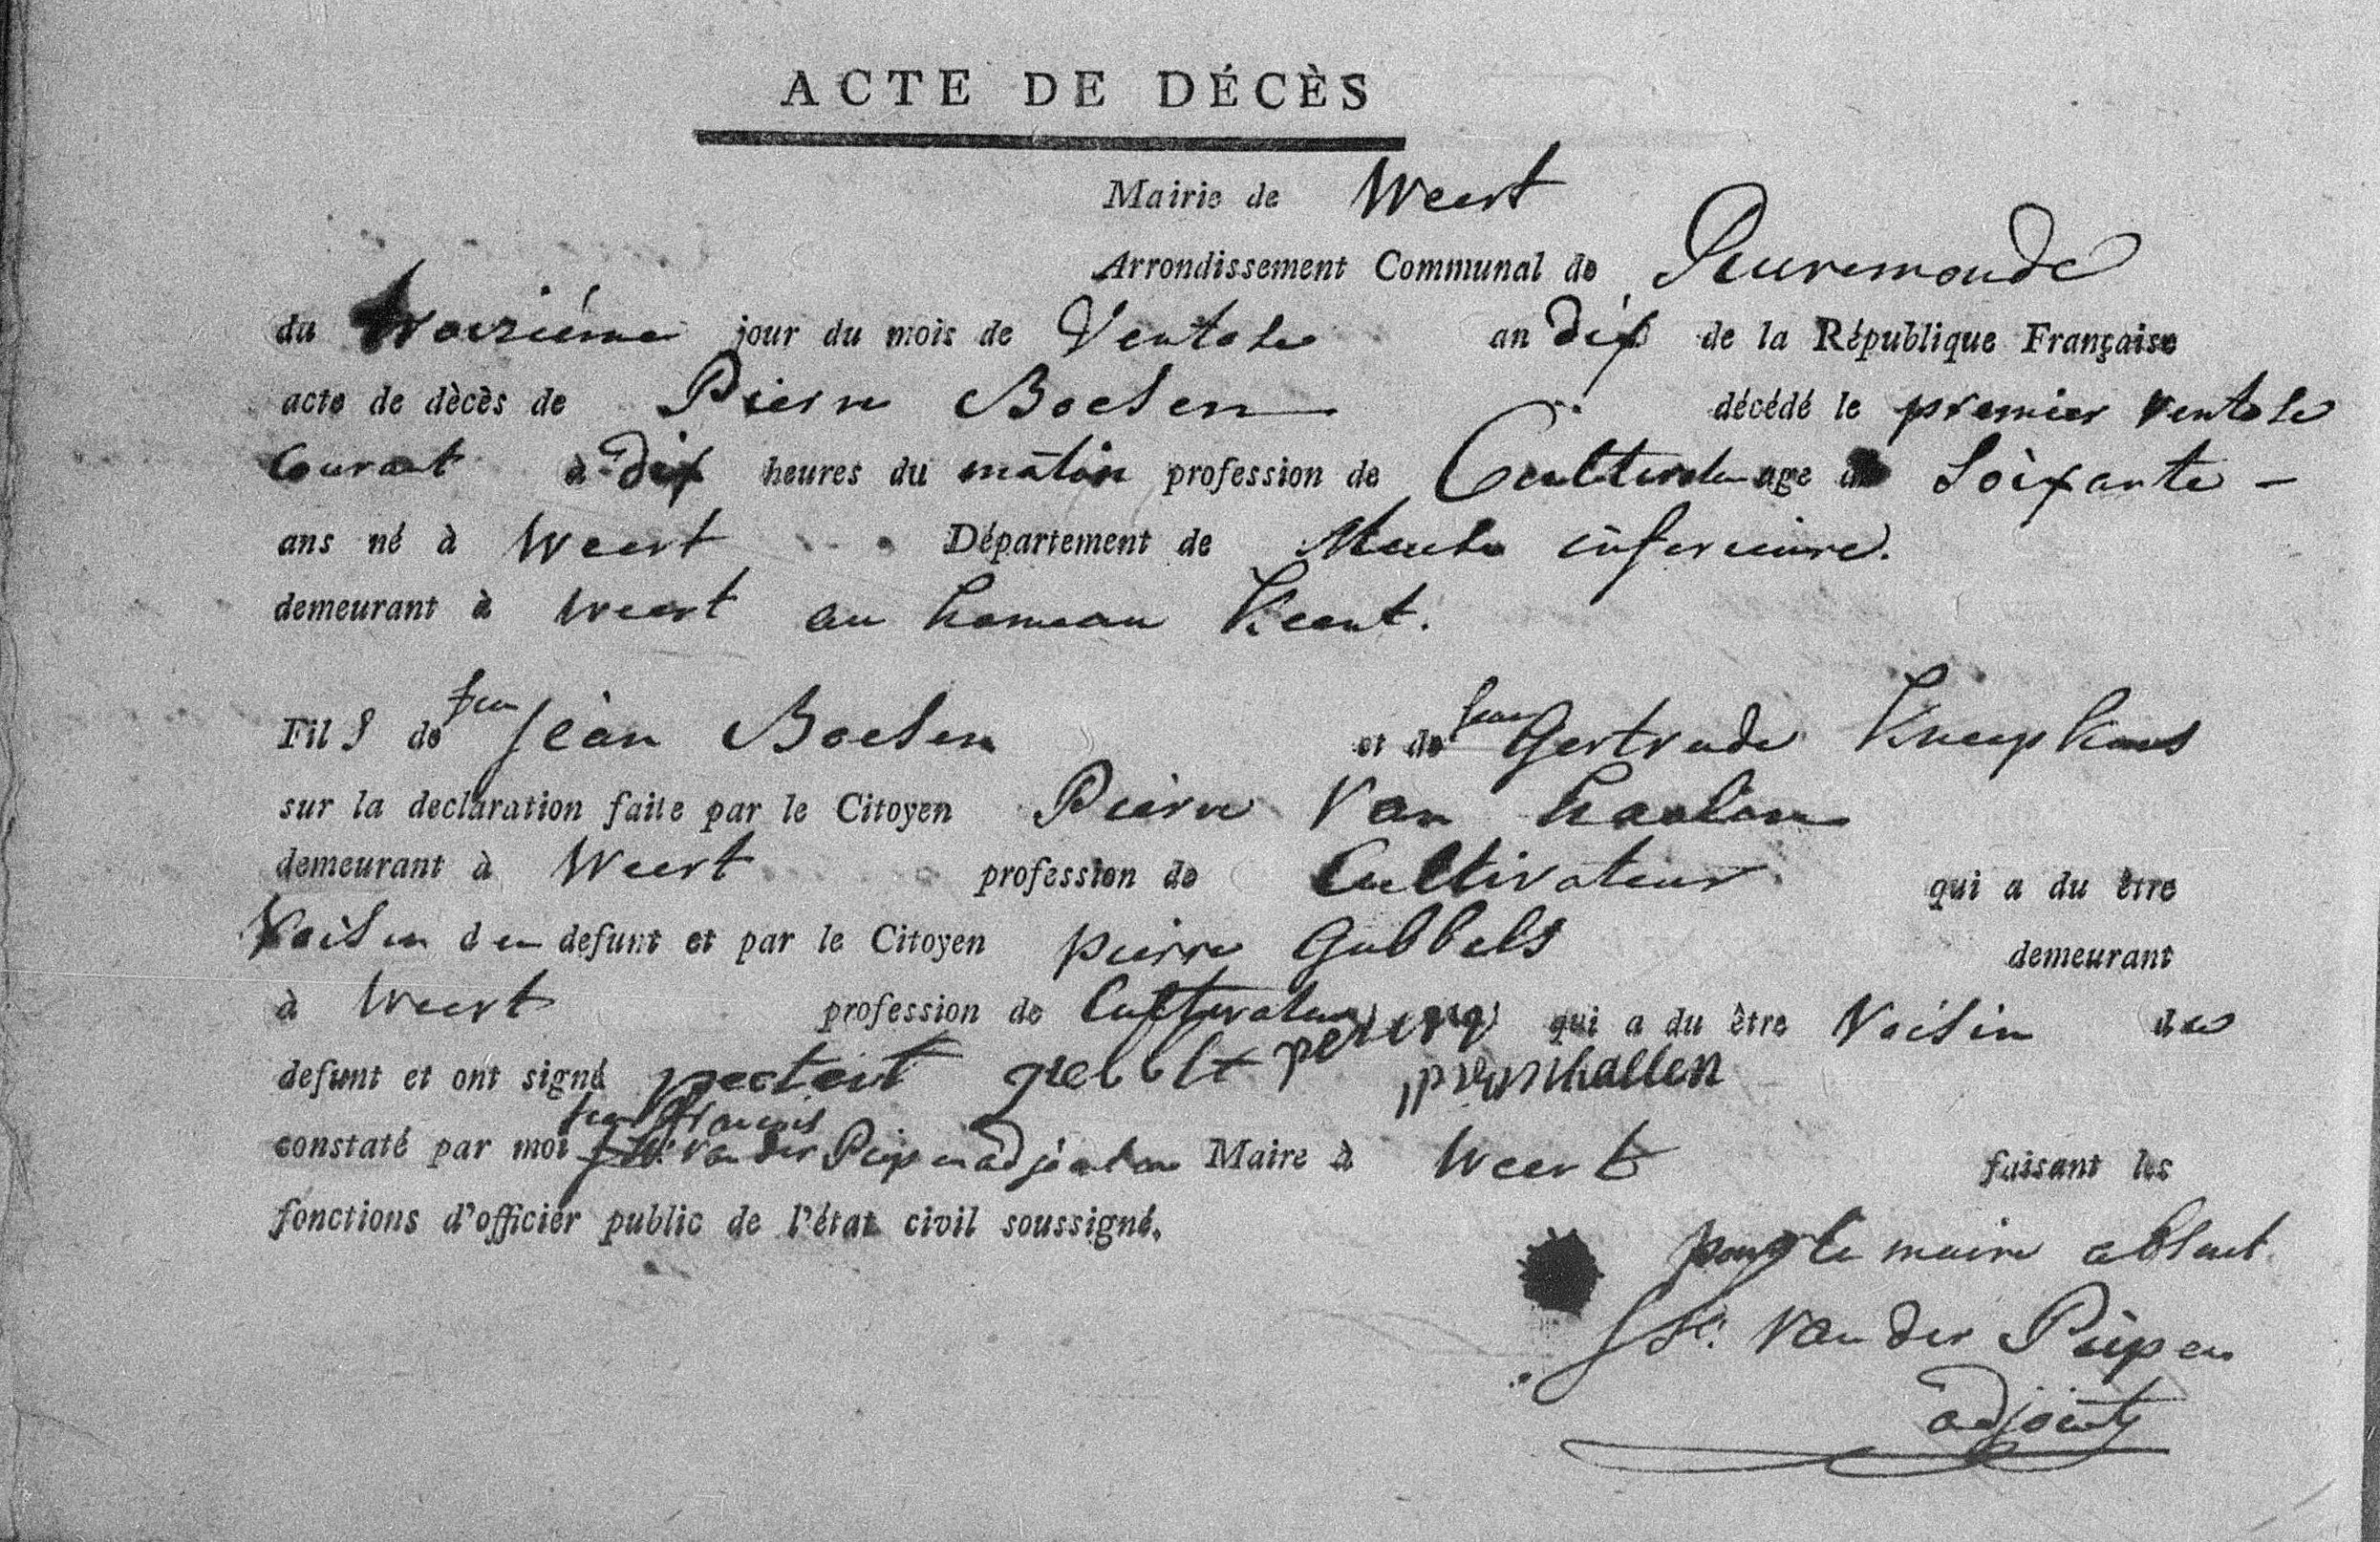 ACTE DE DÉCÈS
Mairie de Weert
Arrondissement Communal de Ruremonde
du troisiéme jour du mois de Ventose an dix de la République Française
acte de dècès de Pierre Boesen décédé le premier ventose
Courant à dix heures du matin profession de Cultivateur age de Soixante -
ans né à Weert Département de Meuse inferieure.
demeurant à Weert au hameau Keent.
Fils de feu Jean Boesen et de feue Gertrude Kneepkens
sur la declaration faite par le Citoyen Pierre Van
demeurant à Weert profession de Cultivateur qui a du être
Voisin du defunt et par le Citoyen pierre Gubbels demeurant
à Weert profession de Cultivateur qui a du être Voisin du
defunt et ont signé
constaté par moi jean françois Van der Piepen adjoint au Maire à Weert faisant les
fonctions d'officier public de l'état civil soussigné.
pour le maire absent
Van der Piepen
adjoint